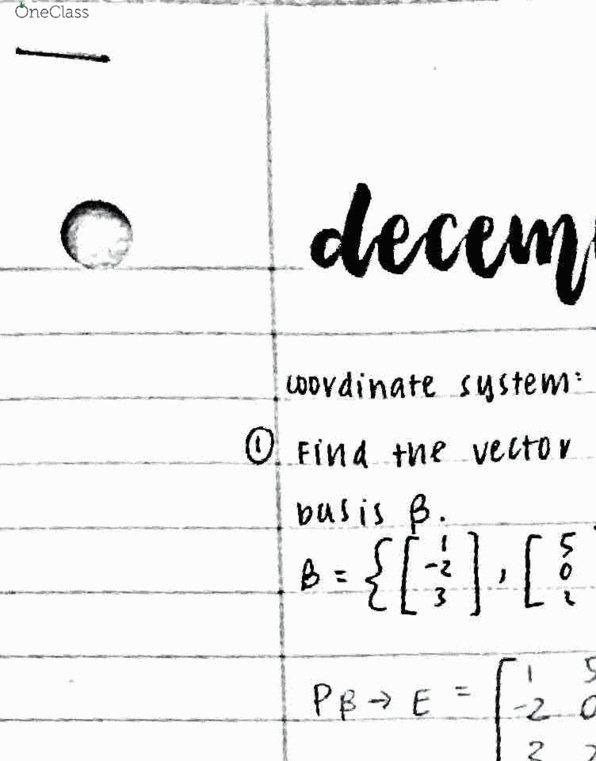 OneClass
decem
coordinate system:
① Find the vector
basis β.
β = { [ 1 -2 3 ] , [ 5 0 2
P β → E = [ 1 5
-2 0
3 2